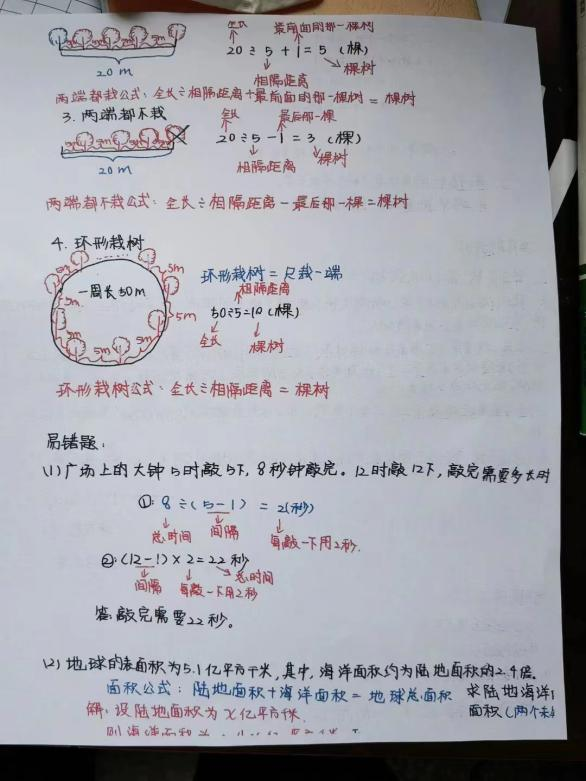 全长 最前面的那一棵树
5m 5m 5m 5m 20÷5+1=5（棵）
20m 相隔距离 棵树
两端都栽公式：全长÷相隔距离+最前面的那一棵树=棵树
3. 两端都不栽 全长 最后那一棵
20÷5-1=3（棵）
20m 相隔距离 棵树
两端都不栽公式：全长÷相隔距离-最后那一棵=棵树
4. 环形栽树
5m
一周长50m 环形栽树=只栽一端
相隔距离
5m 5m 50÷5=10（棵）
5m 5m 全长 棵树
环形栽树公式：全长÷相隔距离=棵树
易错题：
(1) 广场上的大钟5时敲5下，8秒钟敲完。12时敲12下，敲完需要多长时
①：8÷(5-1)=2(秒)
总时间 间隔 每敲一下用2秒.
②：(12-1)×2=22秒
间隔 每敲一下用2秒 总时间
答：敲完需要22秒。
(2) 地球的表面积为5.1亿平方千米，其中，海洋面积约为陆地面积的2.4倍。
面积公式：陆地面积+海洋面积=地球总面积 求陆地海洋
解：设陆地面积为x亿平方千米. 面积（两个未
则海洋面积为